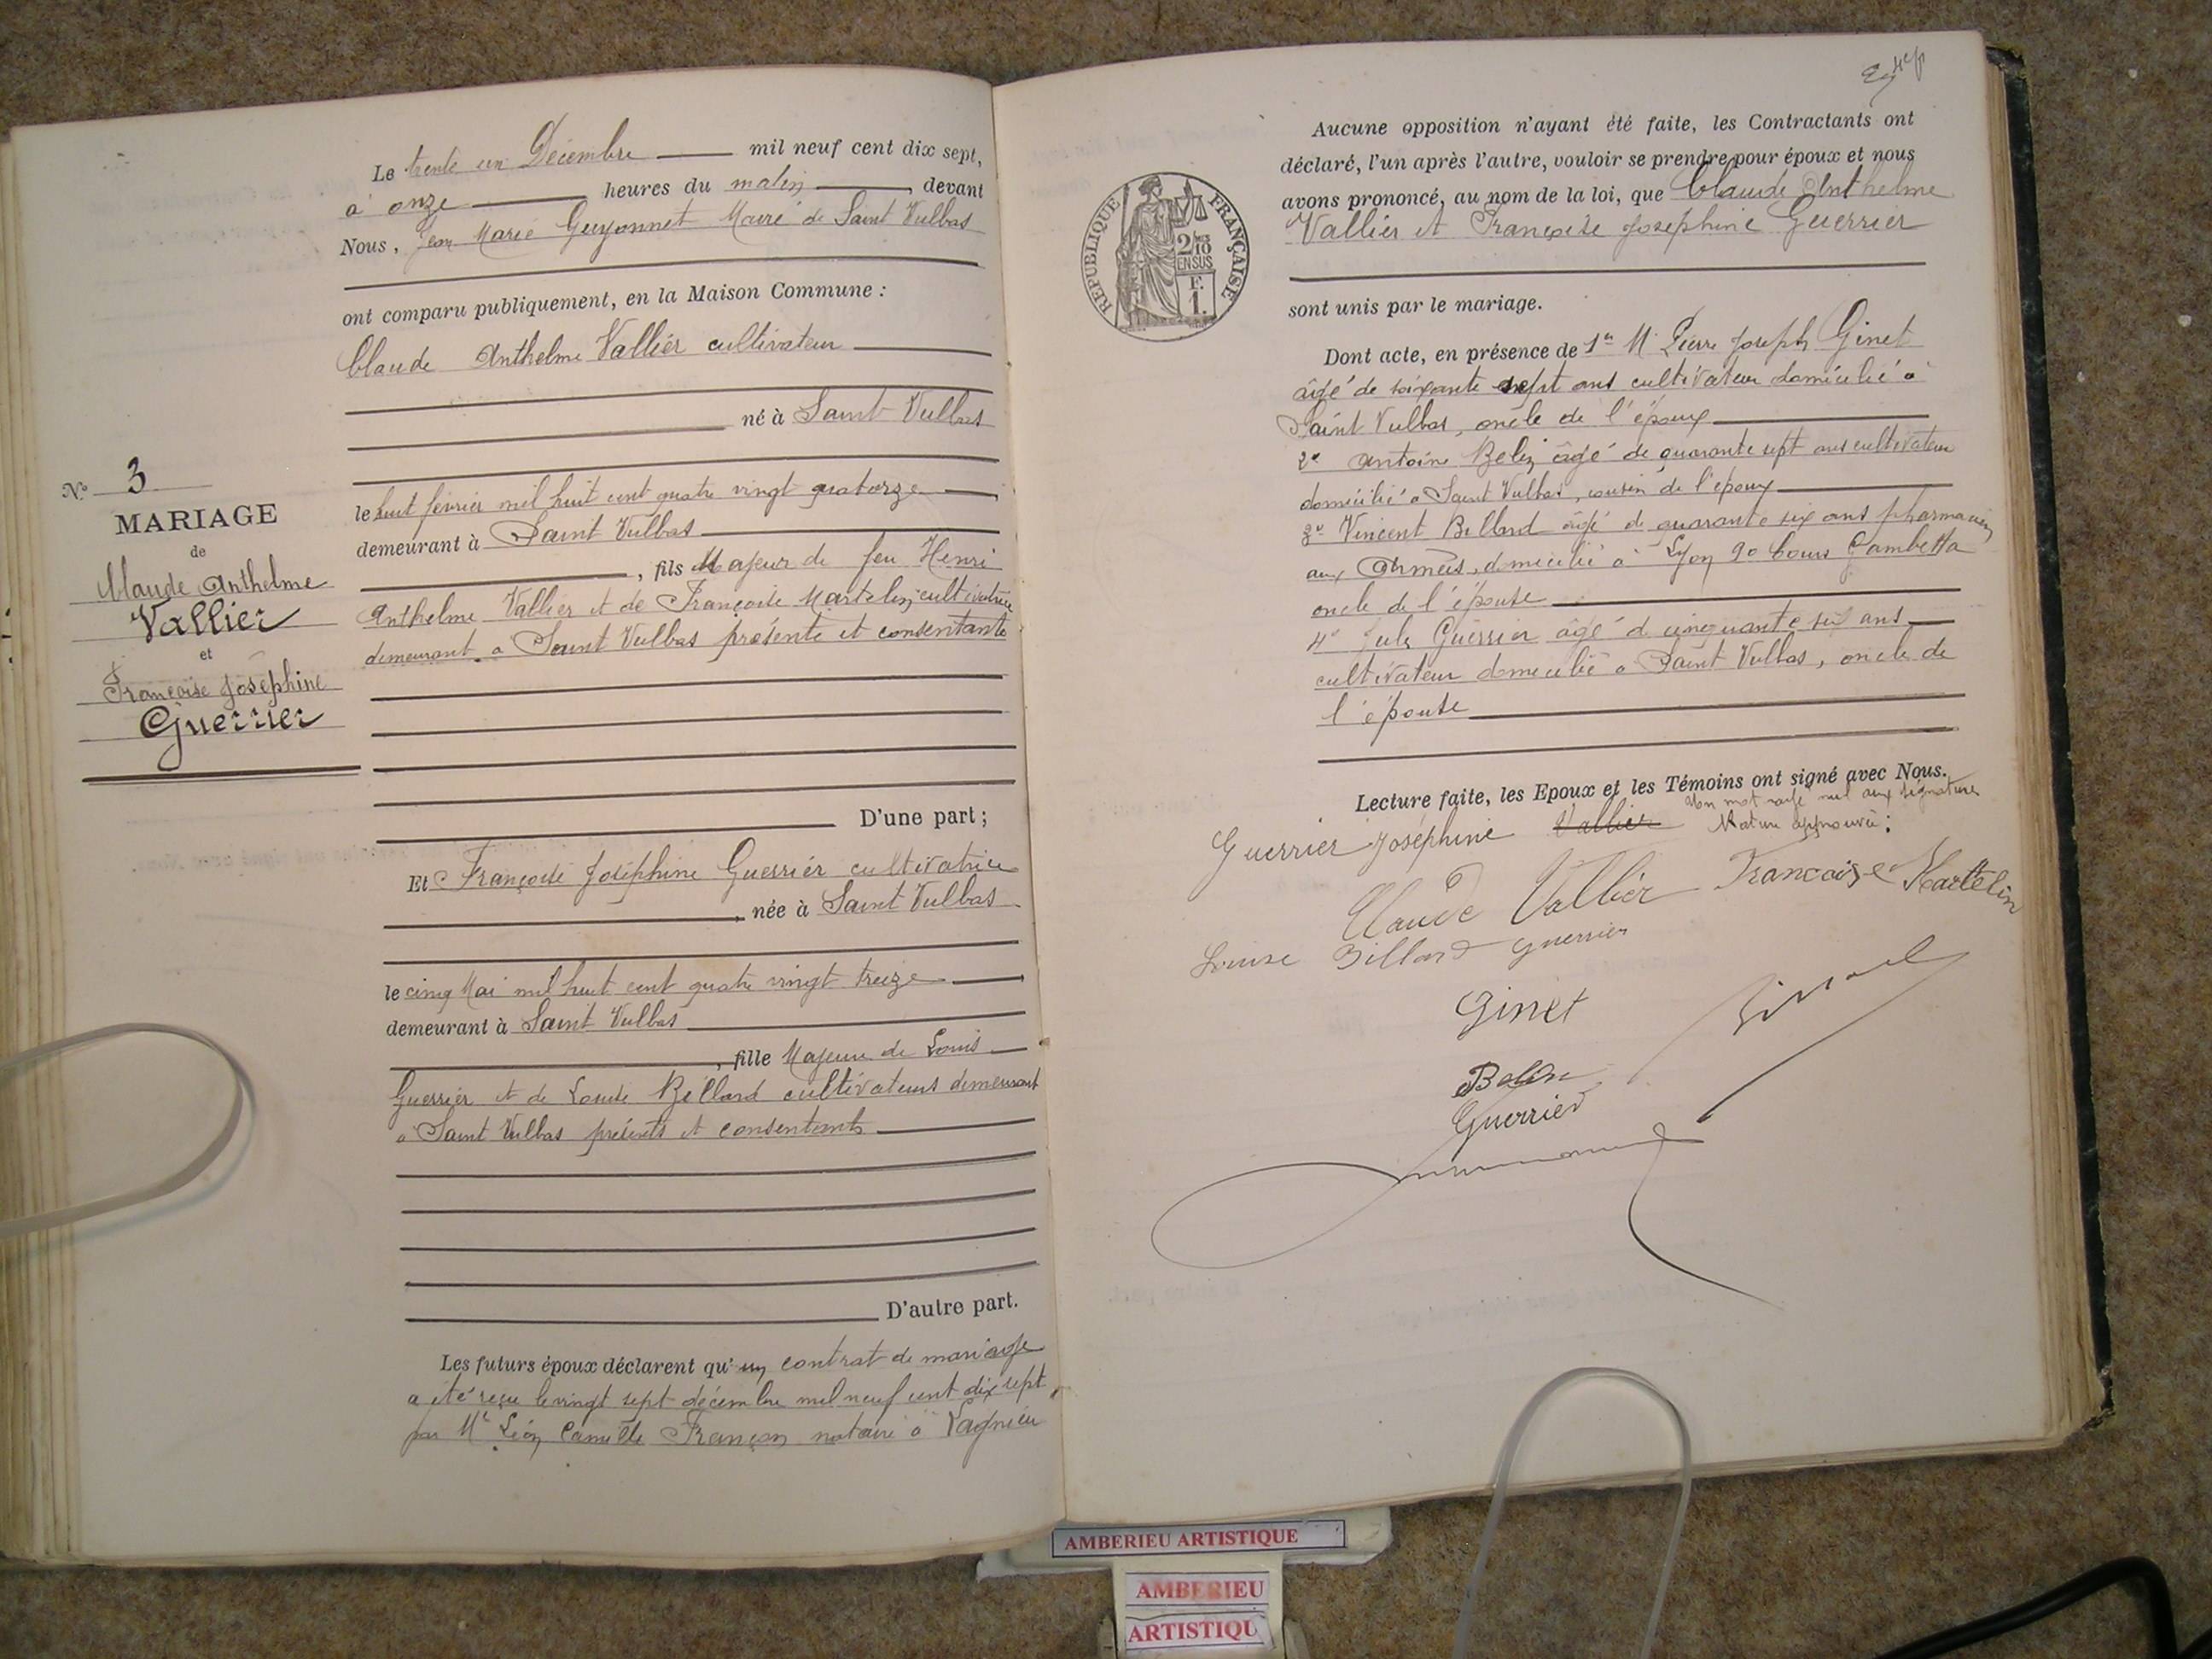 Nº 3
MARIAGE
de
Claude Anthelme
Vallier
et
Françoise Joséphine
Guerrier
Le trente un Décembre mil neuf cent dix sept,
à onze heures du matin, devant
Nous, Jean Marie Guyonnet Maire de Saint Vulbas
ont comparu publiquement, en la Maison Commune :
Claude Anthelme Vallier cultivateur
né à Saint Vulbas
le huit février mil huit cent quatre vingt quatorze
demeurant à Saint Vulbas
, fils Majeur de feu Henri
Anthelme Vallier et de Françoise Martelin cultivatrice
demeurant à Saint Vulbas présente et consentante
D'une part ;
Et Françoise Joséphine Guerrier cultivatrice
, née à Saint Vulbas
le cinq Mai mil huit cent quatre vingt treize
demeurant à Saint Vulbas
, fille Majeure de Louis
Guerrier et de Louise Billard cultivateurs demeurant
à Saint Vulbas présents et consentants
D'autre part.
Les futurs époux déclarent qu'un contrat de mariage
a été reçu le vingt sept décembre mil neuf cent dix sept
par Me Léon Camille Françon notaire à Lagnieu
REPUBLIQUE FRANÇAISE
2/10
EN SUS
F.
1.
Aucune opposition n'ayant été faite, les Contractants ont
déclaré, l'un après l'autre, vouloir se prendre pour époux et nous
avons prononcé, au nom de la loi, que Claude Anthelme
Vallier et Françoise Joséphine Guerrier
sont unis par le mariage.
Dont acte, en présence de 1er M. Pierre Joseph Ginet
âgé de soixante sept ans cultivateur domicilié à
Saint Vulbas, oncle de l'époux
2e Antoine Belin âgé de quarante sept ans cultivateur
domicilié à Saint Vulbas, cousin de l'époux
3e Vincent Billard âgé de quarante six ans pharmacien
aux Armées, domicilié à Lyon 90 Cours Gambetta
oncle de l'épouse
4e Jules Guerrier âgé de cinquante six ans
cultivateur domicilié à Saint Vulbas, oncle de
l'épouse
Lecture faite, les Epoux et les Témoins ont signé avec Nous.
Un mot rayé nul aux signatures
Guerrier Joséphine Vallier Rature approuvée :
Claude Vallier Françoise Martelin
Louise Billard Guerrier
Ginet
Belin
Guerrier
AMBERIEU ARTISTIQUE
AMBERIEU
ARTISTIQU